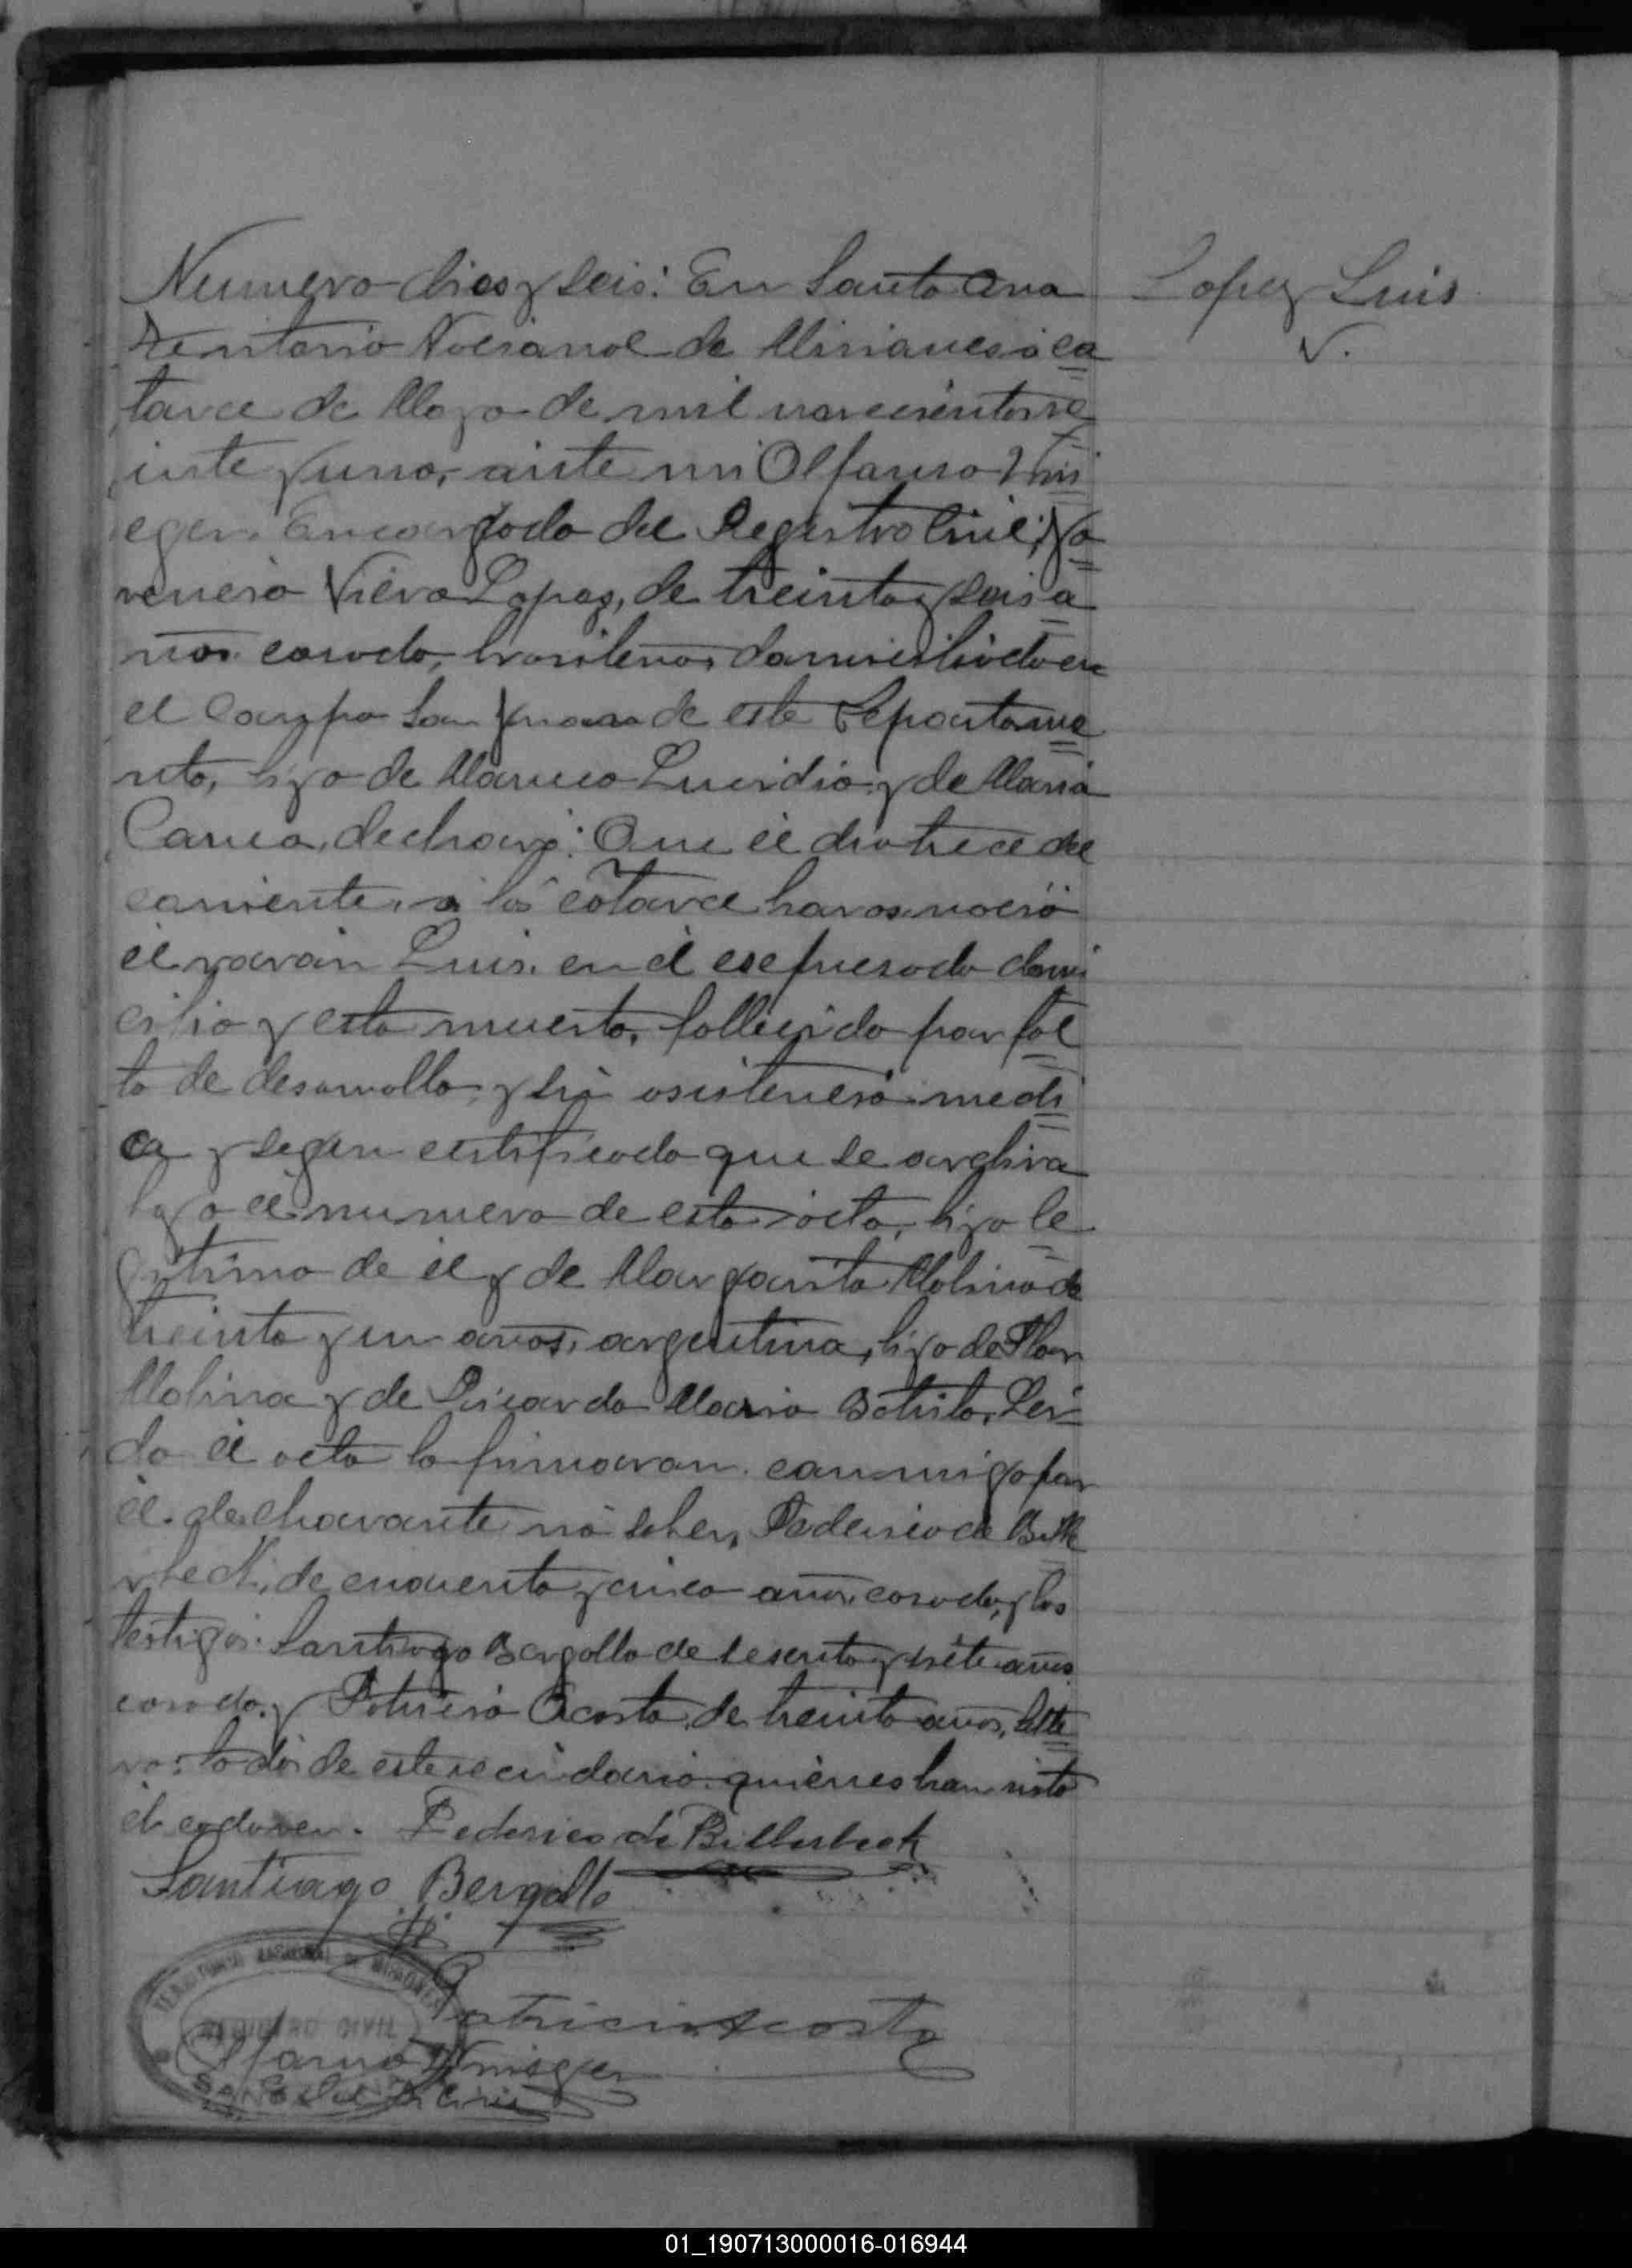 Numero dies y seis: En Santa Ana
Territorio Nacional de Misiones á ca
torce de Mayo de mil novecientos ve
inte y uno, ante mi Alfonso
Encargado del Registro Civil,
Vieva Lopez, de treinta y seis a
ños casado, brasilero, domiciliado en
el Campo San Juan de este Departame
nto, hijo de Maruco Lucidio y de Maria
Caruca, declraró: Que el dia trece del
corriente, a las catorce horas nació
el varón Luis, en el espresado domi
cilio y esta muerto, fallecido por fal
ta de desarrollo y sin asistencia medi
ca y segun certificado que se archiva
bajo el numero de esta acta, hijo le
gitimo de el y de Margarita Molina de
treinta y un años, argentina, hija de
Molina y de Ricarda Maria Leí
da el acta la firmaron conmigo por
el declarante no saber, Federico de Bill
rbeck, de cincuenta y cinco años, casado, y los
testigos Santiago Bergallo de sesenta y siete años
casado y Patricio Acosta de treinta años, solte
ro: todos de este vecindario quienes han visto
el cadaver. Federico de Billerbeck
Santiago Bergallo
Patricio Acosta
TERRITORIO NACIONAL DE MISIONES
REGISTRO CIVIL
Lopez Luis
V.
01_190713000016-016944